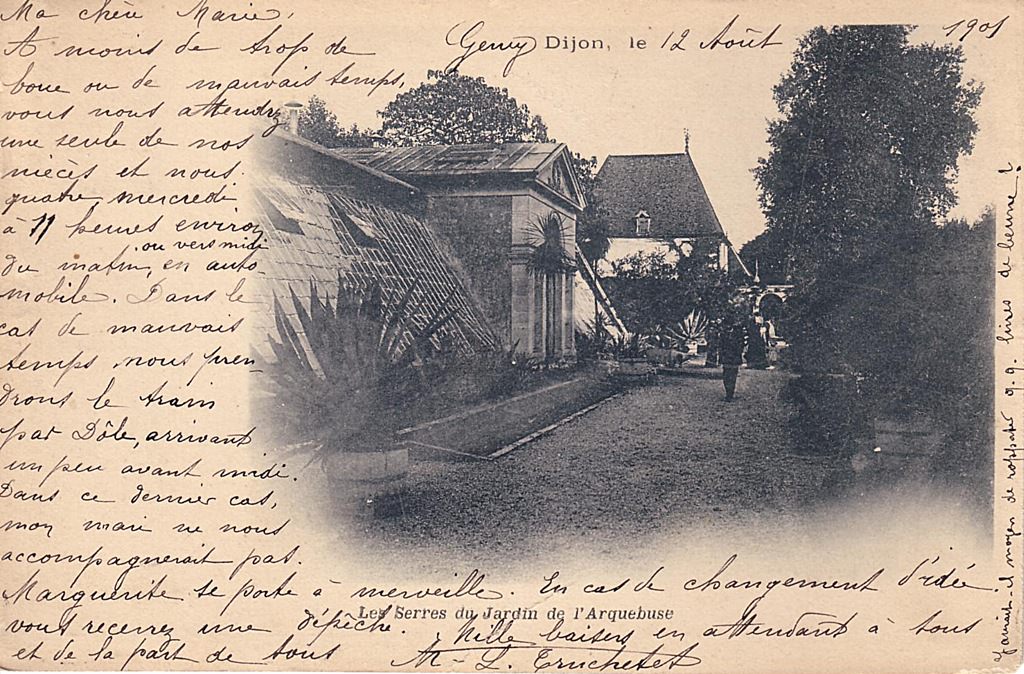 Ma chère Marie,
A moins de trop de
boue ou de mauvais temps,
vous nous attendrez
une seule de nos
nièces et nous
quatre, mercredi
à 11 heures environ
ou vers midi
du matin, en auto-
mobile. Dans le
cas de mauvais
temps nous pren-
drons le train
par Dôle, arrivant
un peu avant midi.
Dans ce dernier cas,
mon mari ne nous
accompagnerait pas.
Marguerite se porte à merveille. En cas de changement d'idée
vous recevrez une dépêche. Mille baisers en attendant à tous
et de la part de tous M-L. Truchetet
Dijon, le 12 Août 1901
Les Serres du Jardin de l'Arquebuse
y aurait-il moyen de rapporter q.q. livres de beurre?